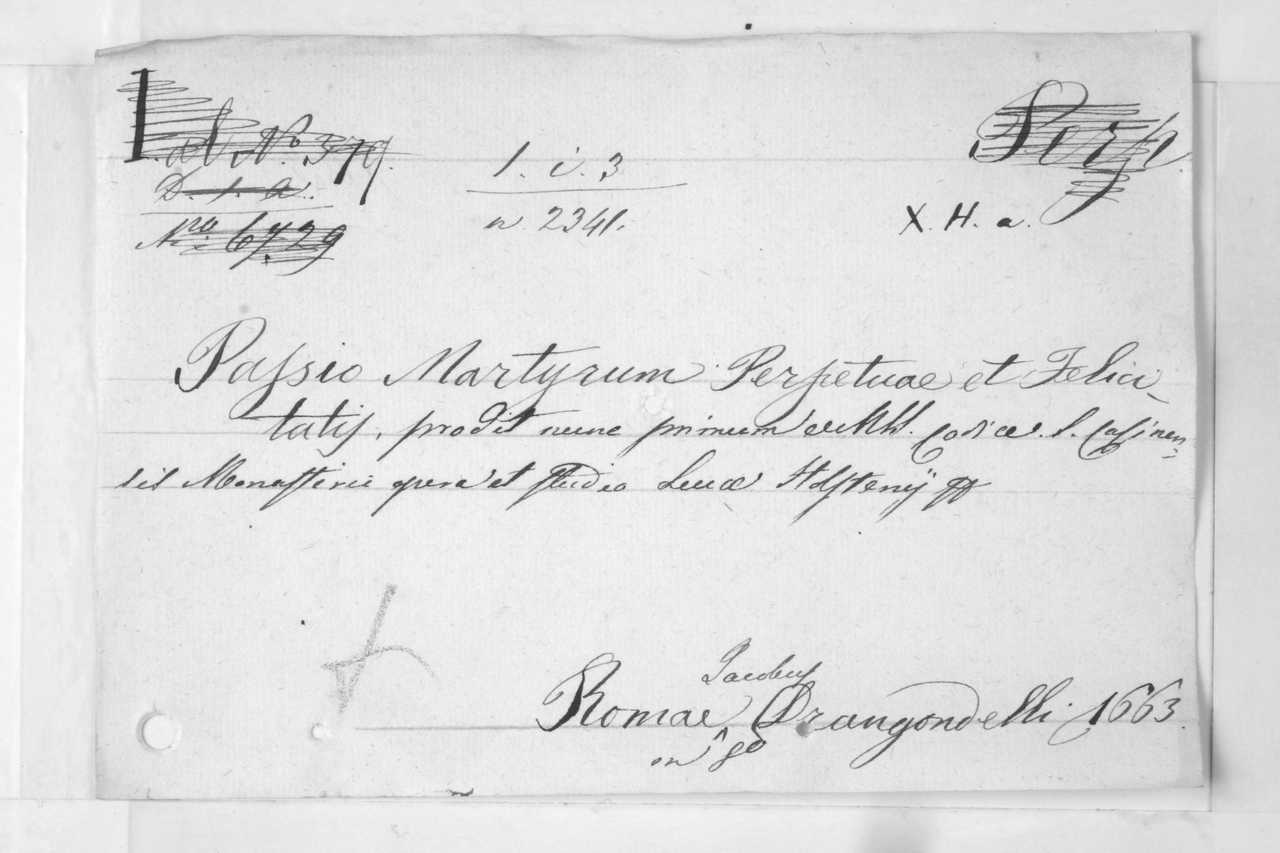 Lat. No. 379.
D. 1. a.
Nro. 6729
1. i. 3
n 2341.
Serp
X. H. a.
Paſsio Martyrum Perpetuae et Felici
tatiſ, prodit nunc primum Codice. S. Caſinen=
sis Monaſterii opera et ſtudio Lucæ Holſtenij
Jacobus
Romae, Drangondelli 1663
in 8o